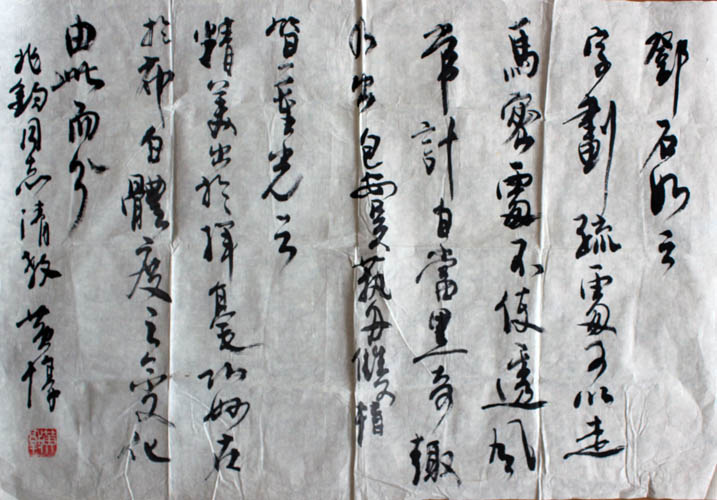 鄧石如云
字劃疏處可以走
馬密處不使透風
常計白當黑奇趣
乃出 包安吴藝舟雙楫
笪重光云
精美出於揮毫巧妙在
於布白體度之變化
由此而分
兆鈞同志清教 黄惇